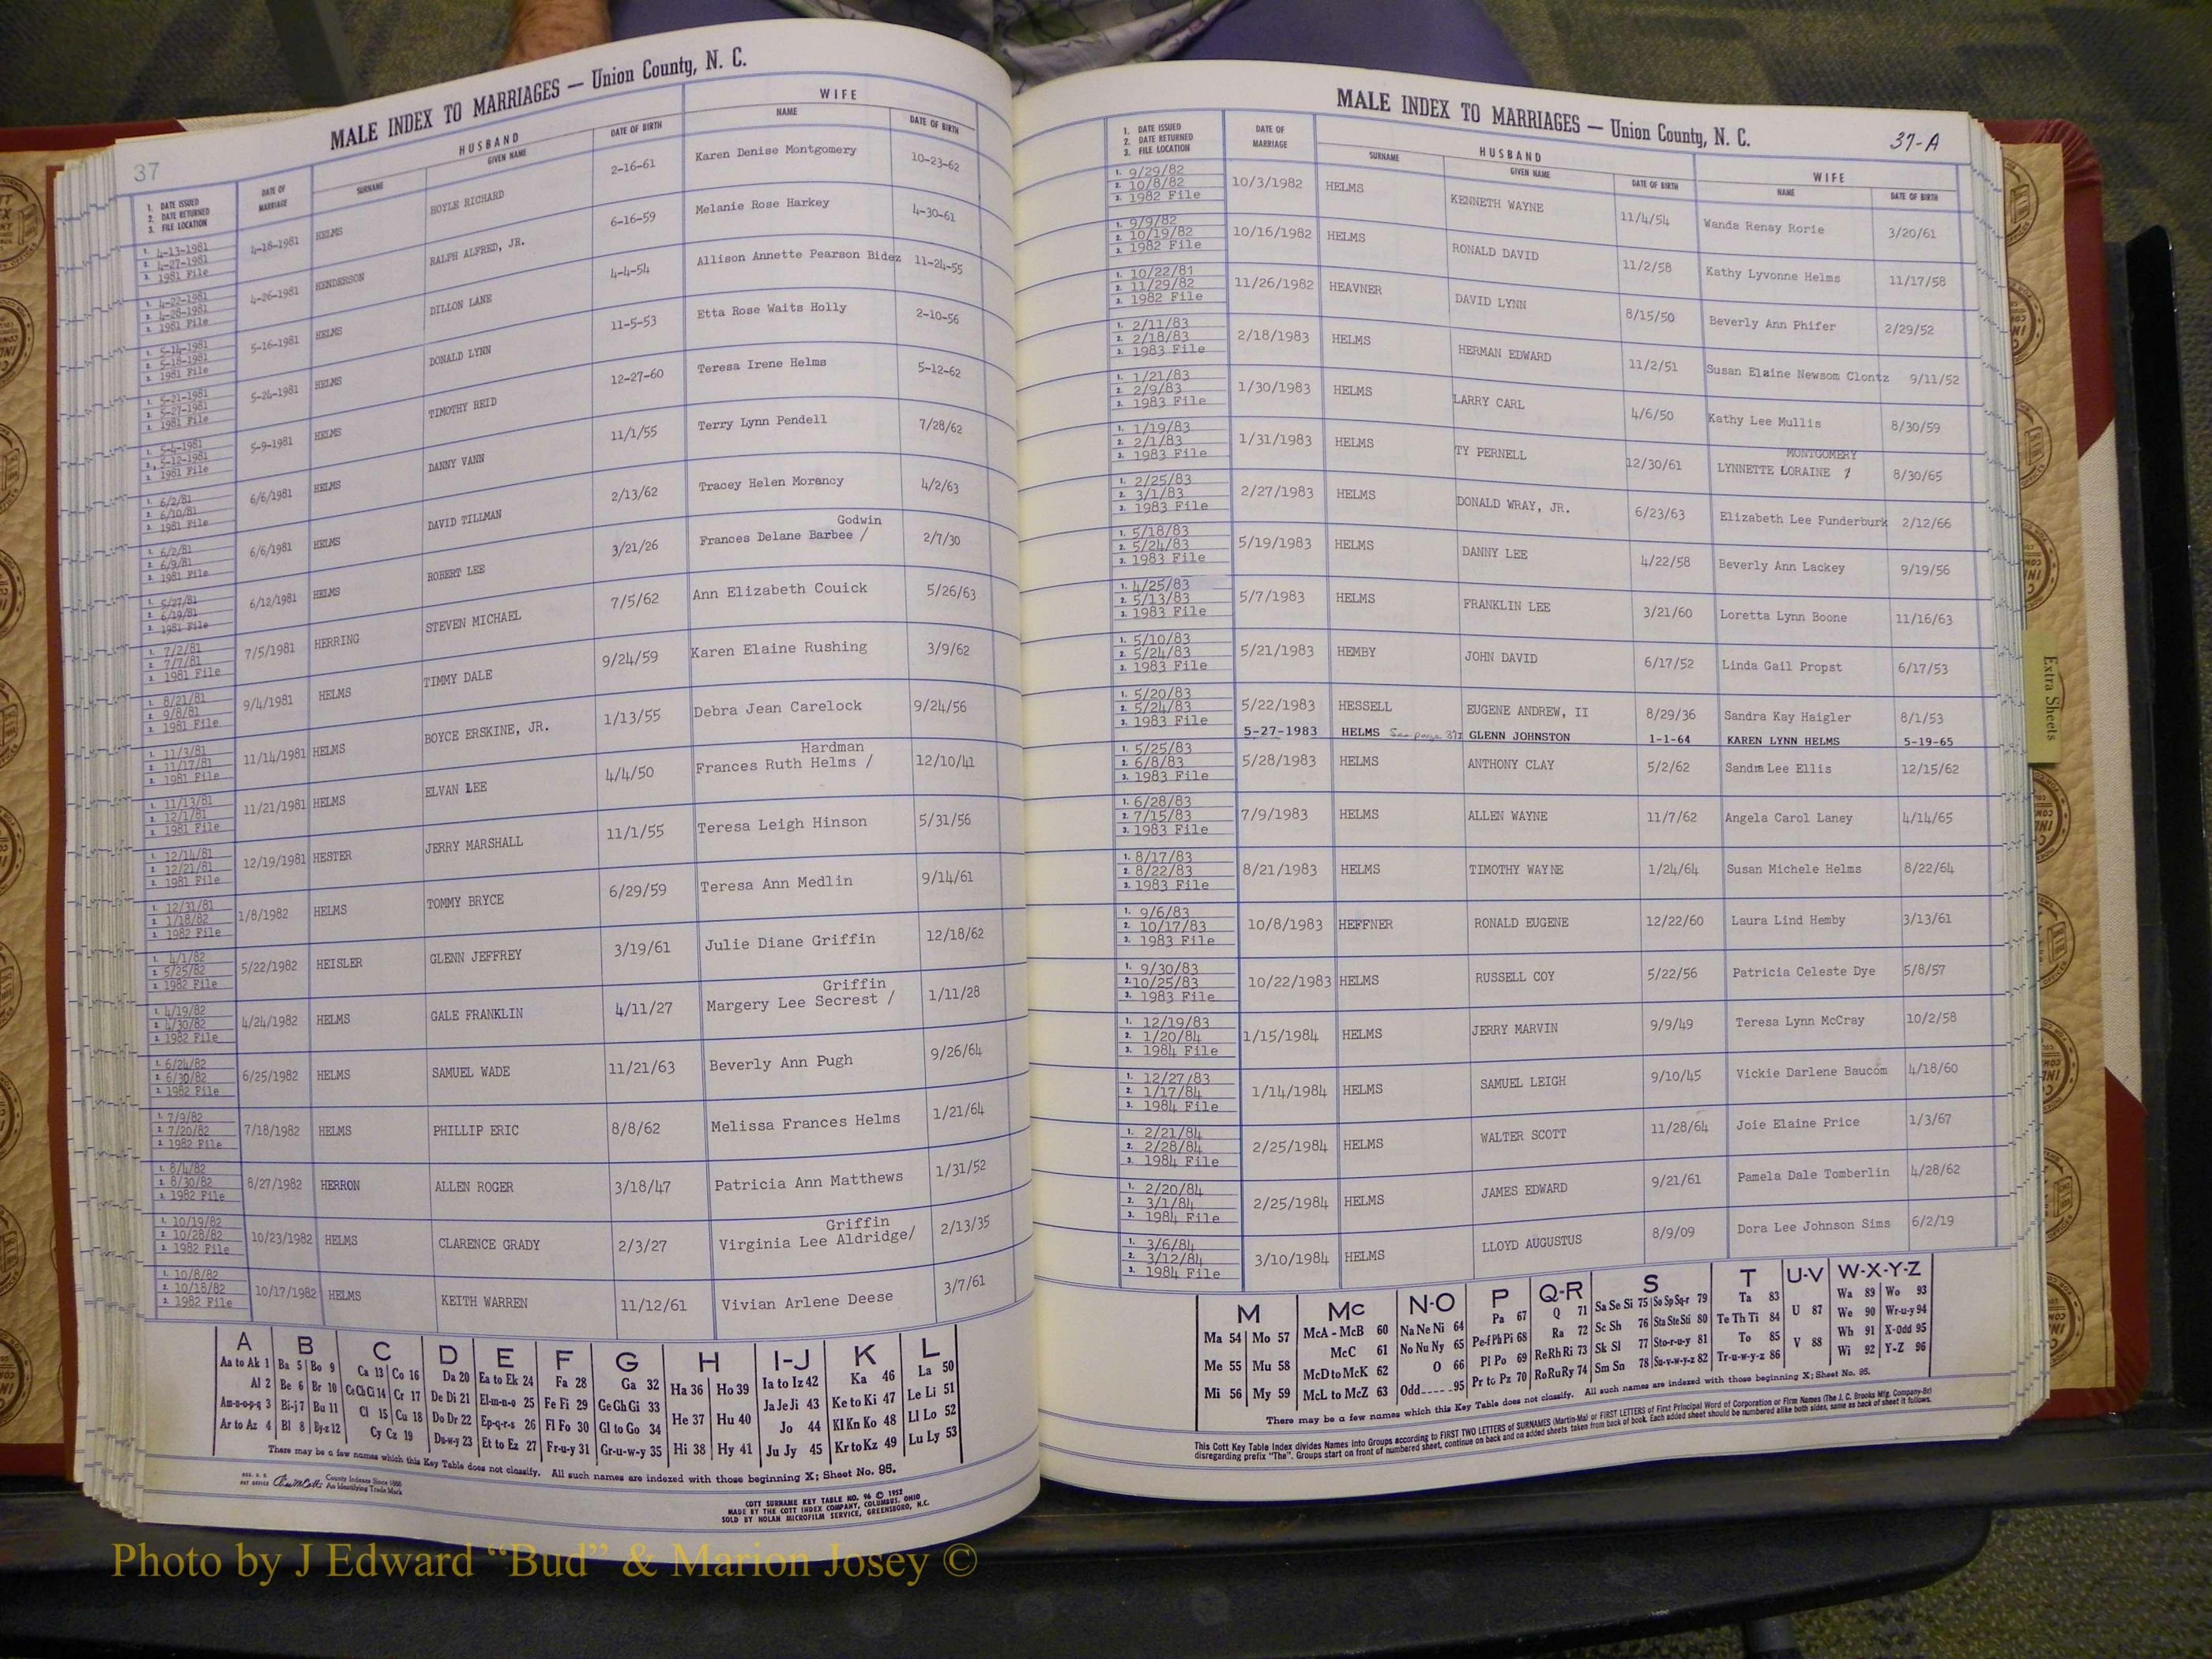 37
MALE INDEX TO MARRIAGES — Union County, N. C.
1. DATE ISSUED 2. DATE RETURNED 3. FILE LOCATION
DATE OF MARRIAGE
HUSBAND
SURNAME GIVEN NAME DATE OF BIRTH
WIFE
NAME DATE OF BIRTH
1. 4-13-1981 2. 4-27-1981 3. 1981 File 4-18-1981 HELMS HOYLE RICHARD 2-16-61 Karen Denise Montgomery 10-23-62
1. 4-22-1981 2. 4-28-1981 3. 1981 File 4-26-1981 HENDERSON RALPH ALFRED, JR. 6-16-59 Melanie Rose Harkey 4-30-61
1. 5-14-1981 2. 5-18-1981 3. 1981 File 5-16-1981 HELMS DILLON LANE 4-4-54 Allison Annette Pearson Bidez 11-24-55
1. 5-21-1981 2. 5-27-1981 3. 1981 File 5-24-1981 HELMS DONALD LYNN 11-5-53 Etta Rose Waits Holly 2-10-56
1. 5-4-1981 2. 5-12-1981 3. 1981 File 5-9-1981 HELMS TIMOTHY REID 12-27-60 Teresa Irene Helms 5-12-62
1. 6/2/81 2. 6/10/81 3. 1981 File 6/6/1981 HELMS DANNY VANN 11/1/55 Terry Lynn Pendell 7/28/62
1. 6/2/81 2. 6/9/81 3. 1981 File 6/6/1981 HELMS DAVID TILLMAN 2/13/62 Tracey Helen Morancy 4/2/63
1. 5/27/81 2. 6/19/81 3. 1981 File 6/12/1981 HELMS ROBERT LEE 3/21/26 Frances Delane Barbee / Godwin 2/7/30
1. 7/2/81 2. 7/7/81 3. 1981 File 7/5/1981 HERRING STEVEN MICHAEL 7/5/62 Ann Elizabeth Couick 5/26/63
1. 8/21/81 2. 9/8/81 3. 1981 File 9/4/1981 HELMS TIMMY DALE 9/24/59 Karen Elaine Rushing 3/9/62
1. 11/3/81 2. 11/17/81 3. 1981 File 11/14/1981 HELMS BOYCE ERSKINE, JR. 1/13/55 Debra Jean Carelock 9/24/56
1. 11/13/81 2. 12/1/81 3. 1981 File 11/21/1981 HELMS ELVAN LEE 4/4/50 Frances Ruth Helms / Hardman 12/10/41
1. 12/14/81 2. 12/21/81 3. 1981 File 12/19/1981 HESTER JERRY MARSHALL 11/1/55 Teresa Leigh Hinson 5/31/56
1. 12/31/81 2. 1/18/82 3. 1982 File 1/8/1982 HELMS TOMMY BRYCE 6/29/59 Teresa Ann Medlin 9/14/61
1. 4/1/82 2. 5/25/82 3. 1982 File 5/22/1982 HEISLER GLENN JEFFREY 3/19/61 Julie Diane Griffin 12/18/62
1. 4/19/82 2. 4/30/82 3. 1982 File 4/24/1982 HELMS GALE FRANKLIN 4/11/27 Margery Lee Secrest / Griffin 1/11/28
1. 6/24/82 2. 6/30/82 3. 1982 File 6/25/1982 HELMS SAMUEL WADE 11/21/63 Beverly Ann Pugh 9/26/64
1. 7/9/82 2. 7/20/82 3. 1982 File 7/18/1982 HELMS PHILLIP ERIC 8/8/62 Melissa Frances Helms 1/21/64
1. 8/4/82 2. 8/30/82 3. 1982 File 8/27/1982 HERRON ALLEN ROGER 3/18/47 Patricia Ann Matthews 1/31/52
1. 10/19/82 2. 10/28/82 3. 1982 File 10/23/1982 HELMS CLARENCE GRADY 2/3/27 Virginia Lee Aldridge/ Griffin 2/13/35
1. 10/8/82 2. 10/18/82 3. 1982 File 10/17/1982 HELMS KEITH WARREN 11/12/61 Vivian Arlene Deese 3/7/61
A B C D E F G H I-J K L
Aa to Ak 1 Ba 5 Bo 9 Ca 13 Co 16 Da 20 Ea to Ek 24 Fa 28 Ga 32 Ha 36 Ho 39 Ia to Iz 42 Ka 46 La 50
Al 2 Be 6 Br 10 Ce Ch Ci 14 Cr 17 De Di 21 El-m-n-o 25 Fe Fi 29 Ge Gh Gi 33 He 37 Hu 40 Ja Je Ji 43 Ke to Ki 47 Le Li 51
Am-n-o-p-q 3 Bi-j 7 Bu 11 Cl 15 Cu 18 Do Dr 22 Ep-q-r-s 26 Fl Fo 30 Gl to Go 34 Hi 38 Hy 41 Jo 44 Kl Kn Ko 48 Ll Lo 52
Ar to Az 4 Bl 8 By-z 12 Cy Cz 19 Du-w-y 23 Et to Ez 27 Fr-u-y 31 Gr-u-w-y 35 Ju Jy 45 Kr to Kz 49 Lu Ly 53
There may be a few names which this Key Table does not classify. All such names are indexed with those beginning X; Sheet No. 95.
REG. U. S. PAT OFFICE County Indexes Since 1888 An Identifying Trade Mark
COTT SURNAME KEY TABLE NO. 96 © 1952
MADE BY THE COTT INDEX COMPANY, COLUMBUS, OHIO
SOLD BY NOLAN MICROFILM SERVICE, GREENSBORO, N.C.
MALE INDEX TO MARRIAGES — Union County, N. C.
37-A
1. DATE ISSUED 2. DATE RETURNED 3. FILE LOCATION
DATE OF MARRIAGE
HUSBAND
SURNAME GIVEN NAME DATE OF BIRTH
WIFE
NAME DATE OF BIRTH
1. 9/29/82 2. 10/8/82 3. 1982 File 10/3/1982 HELMS KENNETH WAYNE 11/4/54 Wanda Renay Rorie 3/20/61
1. 9/9/82 2. 10/19/82 3. 1982 File 10/16/1982 HELMS RONALD DAVID 11/2/58 Kathy Lyvonne Helms 11/17/58
1. 10/22/81 2. 11/29/82 3. 1982 File 11/26/1982 HEAVNER DAVID LYNN 8/15/50 Beverly Ann Phifer 2/29/52
1. 2/11/83 2. 2/18/83 3. 1983 File 2/18/1983 HELMS HERMAN EDWARD 11/2/51 Susan Elaine Newsom Clontz 9/11/52
1. 1/21/83 2. 2/9/83 3. 1983 File 1/30/1983 HELMS LARRY CARL 4/6/50 Kathy Lee Mullis 8/30/59
1. 1/19/83 2. 2/1/83 3. 1983 File 1/31/1983 HELMS TY PERNELL 12/30/61 LYNNETTE LORAINE / MONTGOMERY 8/30/65
1. 2/25/83 2. 3/1/83 3. 1983 File 2/27/1983 HELMS DONALD WRAY, JR. 6/23/63 Elizabeth Lee Funderburk 2/12/66
1. 5/18/83 2. 5/24/83 3. 1983 File 5/19/1983 HELMS DANNY LEE 4/22/58 Beverly Ann Lackey 9/19/56
1. 4/25/83 2. 5/13/83 3. 1983 File 5/7/1983 HELMS FRANKLIN LEE 3/21/60 Loretta Lynn Boone 11/16/63
1. 5/10/83 2. 5/24/83 3. 1983 File 5/21/1983 HEMBY JOHN DAVID 6/17/52 Linda Gail Propst 6/17/53
1. 5/20/83 2. 5/24/83 3. 1983 File 5/22/1983 HESSELL EUGENE ANDREW, II 8/29/36 Sandra Kay Haigler 8/1/53
5-27-1983 HELMS See page 37I GLENN JOHNSTON 1-1-64 KAREN LYNN HELMS 5-19-65
1. 5/25/83 2. 6/8/83 3. 1983 File 5/28/1983 HELMS ANTHONY CLAY 5/2/62 Sandra Lee Ellis 12/15/62
1. 6/28/83 2. 7/15/83 3. 1983 File 7/9/1983 HELMS ALLEN WAYNE 11/7/62 Angela Carol Laney 4/14/65
1. 8/17/83 2. 8/22/83 3. 1983 File 8/21/1983 HELMS TIMOTHY WAYNE 1/24/64 Susan Michele Helms 8/22/64
1. 9/6/83 2. 10/17/83 3. 1983 File 10/8/1983 HEFFNER RONALD EUGENE 12/22/60 Laura Lind Hemby 3/13/61
1. 9/30/83 2. 10/25/83 3. 1983 File 10/22/1983 HELMS RUSSELL COY 5/22/56 Patricia Celeste Dye 5/8/57
1. 12/19/83 2. 1/20/84 3. 1984 File 1/15/1984 HELMS JERRY MARVIN 9/9/49 Teresa Lynn McCray 10/2/58
1. 12/27/83 2. 1/17/84 3. 1984 File 1/14/1984 HELMS SAMUEL LEIGH 9/10/45 Vickie Darlene Baucom 4/18/60
1. 2/21/84 2. 2/28/84 3. 1984 File 2/25/1984 HELMS WALTER SCOTT 11/28/64 Joie Elaine Price 1/3/67
1. 2/20/84 2. 3/1/84 3. 1984 File 2/25/1984 HELMS JAMES EDWARD 9/21/61 Pamela Dale Tomberlin 4/28/62
1. 3/6/84 2. 3/12/84 3. 1984 File 3/10/1984 HELMS LLOYD AUGUSTUS 8/9/09 Dora Lee Johnson Sims 6/2/19
M Mc N-O P Q-R S T U-V W-X-Y-Z
Ma 54 Mo 57 McA - McB 60 Na Ne Ni 64 Pa 67 Q 71 Sa Se Si 75 So Sp Sq-r 79 Ta 83 U 87 Wa 89 Wo 93
Me 55 Mu 58 McC 61 No Nu Ny 65 Pe-f Ph Pi 68 Ra 72 Sc Sh 76 Sta Ste Sti 80 Te Th Ti 84 V 88 We 90 Wr-u-y 94
Mi 56 My 59 McD to McK 62 O 66 Pl Po 69 Re Rh Ri 73 Sk Sl 77 Sto-r-u-y 81 To 85 Wh 91 X-Odd 95
McL to McZ 63 Odd 95 Pr to Pz 70 Ro Ru Ry 74 Sm Sn 78 Su-v-w-y-z 82 Tr-u-w-y-z 86 Wi 92 Y-Z 96
There may be a few names which this Key Table does not classify. All such names are indexed with those beginning X; Sheet No. 95.
This Cott Key Table Index divides Names into Groups according to FIRST TWO LETTERS of SURNAMES (Martin-Ma) or FIRST LETTERS of First Principal Word of Corporation or Firm Names (The J. C. Brooks Mfg. Company-Br)
disregarding prefix "The". Groups start on front of numbered sheet, continue on back and on added sheets taken from back of book. Each added sheet should be numbered alike both sides, same as back of sheet it follows.
Extra Sheets
Photo by J Edward “Bud” & Marion Josey ©